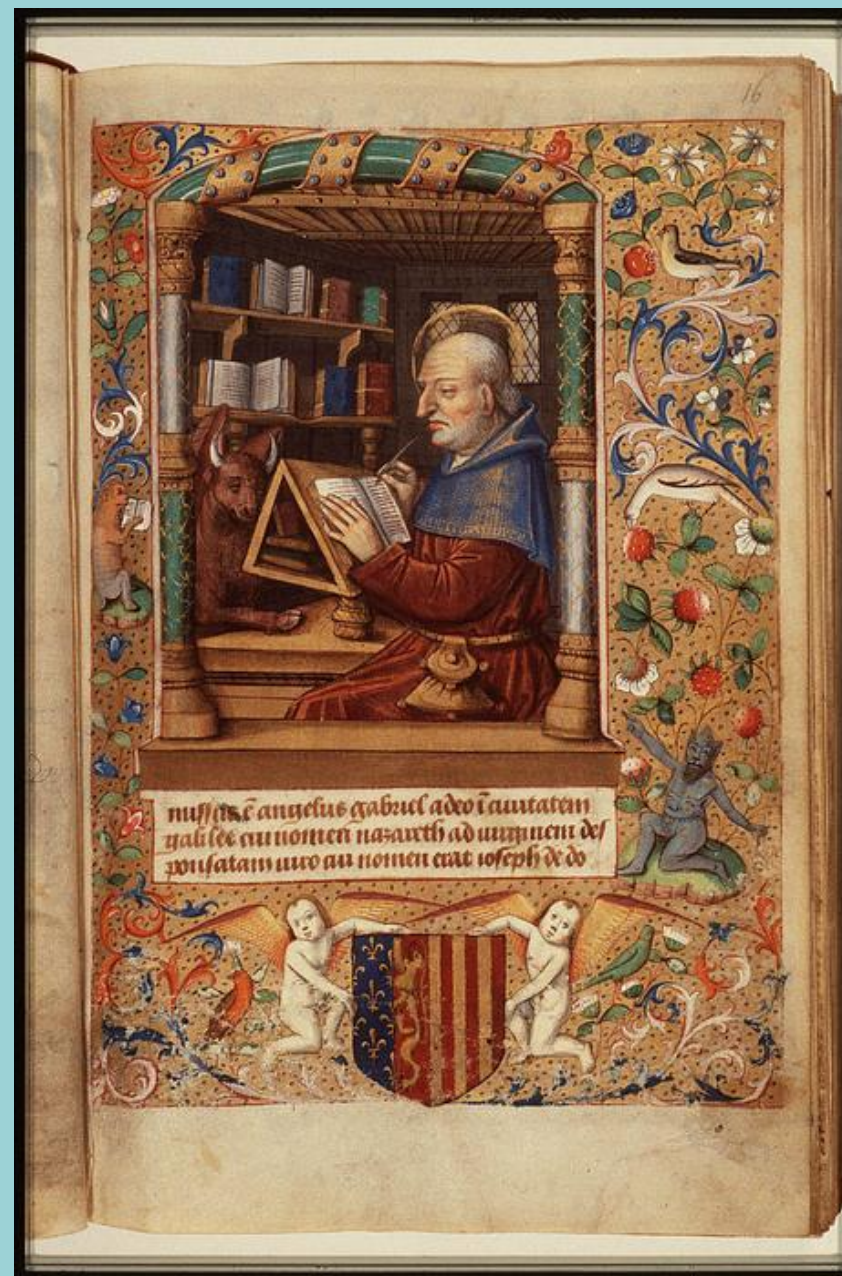 16
missus ē angelus gabriel a deo ī ciuitatem
galilee cui nomen nazareth ad uirginem des
ponsatam uiro cui nomen erat ioseph de do